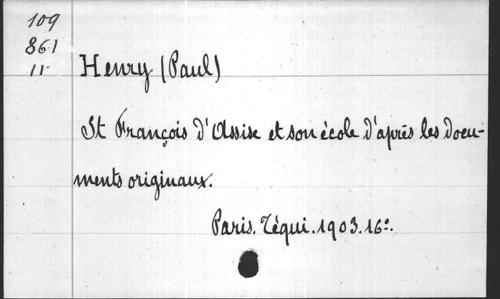 109
861
11
Henry (Paul)
St François d'Assise et son école d'après les docu-
ments originaux.
Paris. Téqui. 1903. 16º.